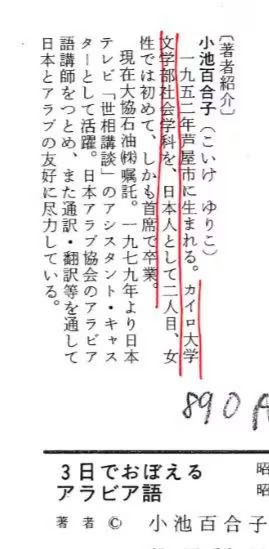 〔著者紹介〕
小池百合子(こいけ ゆりこ)
一九五二年芦屋市に生まれる。カイロ大学
文学部社会学科を、日本人として二人目、女
性では初めて、しかも首席で卒業。
現在大協石油㈱嘱託。一九七九年より日本
テレビ「世相講談」のアシスタント・キャス
ターとして活躍。日本アラブ協会のアラビア
語講師をつとめ、また通訳・翻訳等を通して
日本とアラブの友好に尽力している。
890A
3日でおぼえる
アラビア語
昭
昭
著者 © 小池百合子